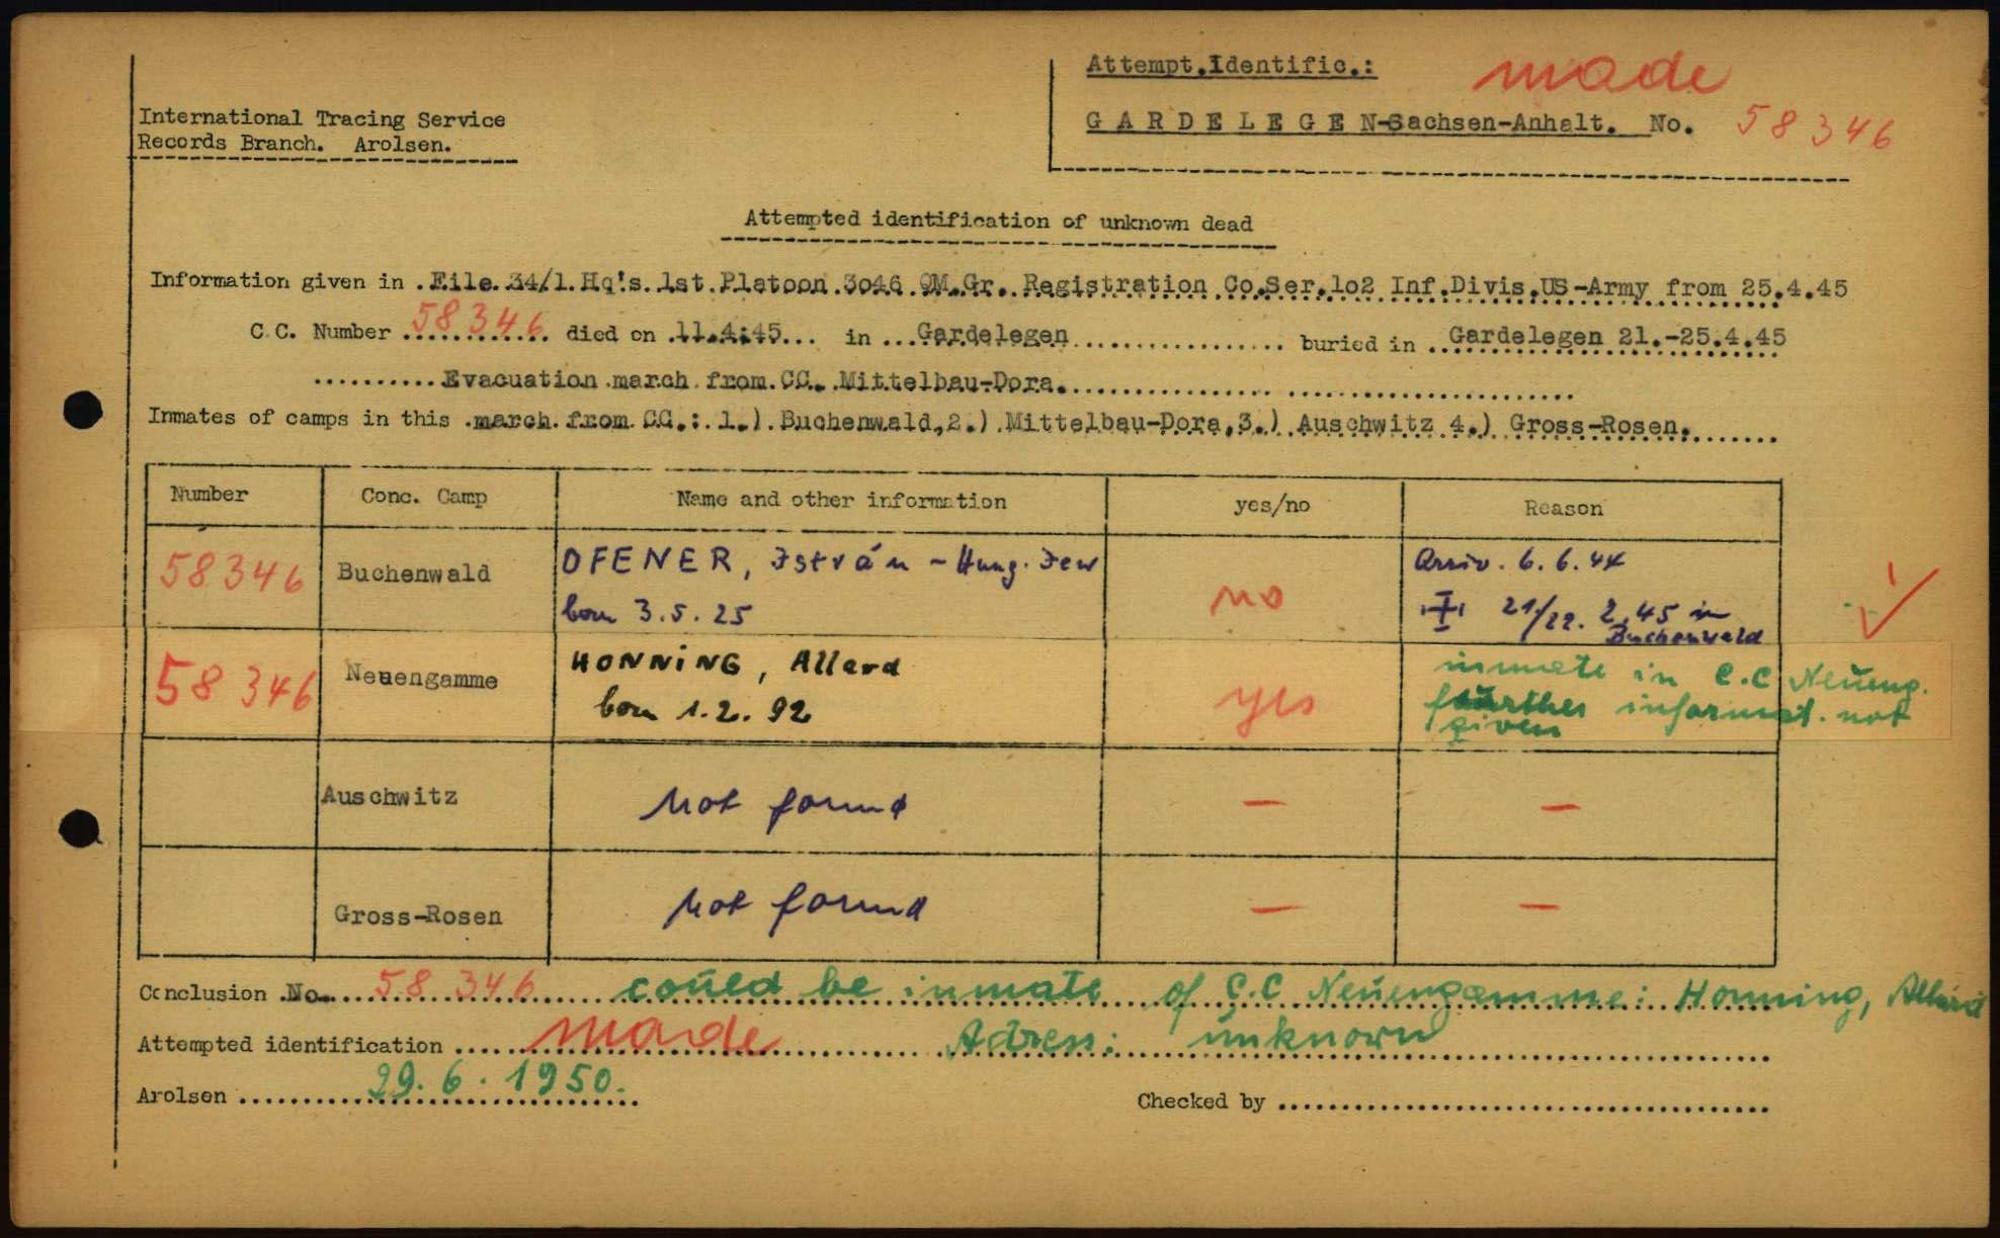 Attempt.Identific.: made
International Tracing Service
Records Branch. Arolsen.
GARDELEGEN-Sachsen-Anhalt. No. 58346
Attempted identification of unknown dead
Information given in .File.34/1.Hq's.1st.Platoon.3046.QM.Gr..Registration.Co.Ser.1o2 Inf.Divis.US-Army from 25.4.45
C.C. Number 58346 died on .11.4.45... in ...Gardelegen................. buried in ..Gardelegen 21.-25.4.45
..........Evacuation.march.from.CC..Mittelbau-Dora.................................
Inmates of camps in this .march.from.CC.:.1.).Buchenwald,2.).Mittelbau-Dora,3.) Auschwitz 4.) Gross-Rosen........
Number Conc. Camp Name and other information yes/no Reason
58346 Buchenwald OFENER, István - Hung. Jew no Arriv. 6.6.44
born 3.5.25 21/22. 2.45 in
Buchenwald
58346 Neuengamme HONNING, Allard yes inmate in C.C Neueng.
born 1.2.92 further informat. not
given
Auschwitz Not found — —
Gross-Rosen Not found — —
Conclusion .No... 58 346 could be inmate of C.C Neuengamme: Honning, Allard
Attempted identification ..... made Adress: unknown
Arolsen 29.6.1950.
Checked by ......................................